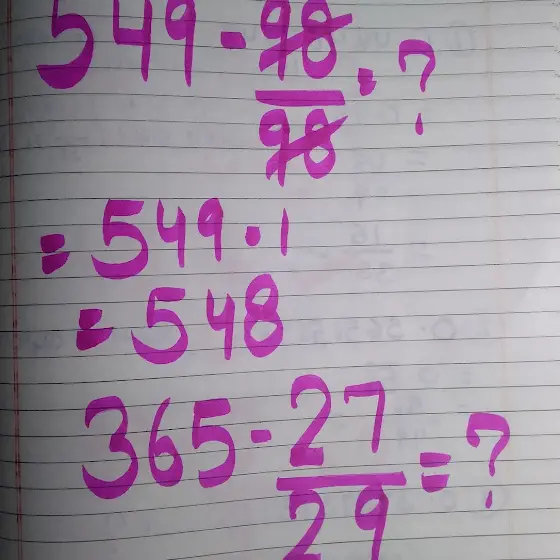 549 - 98/98 = ?
= 549 - 1
= 548
365 - 27/29 = ?